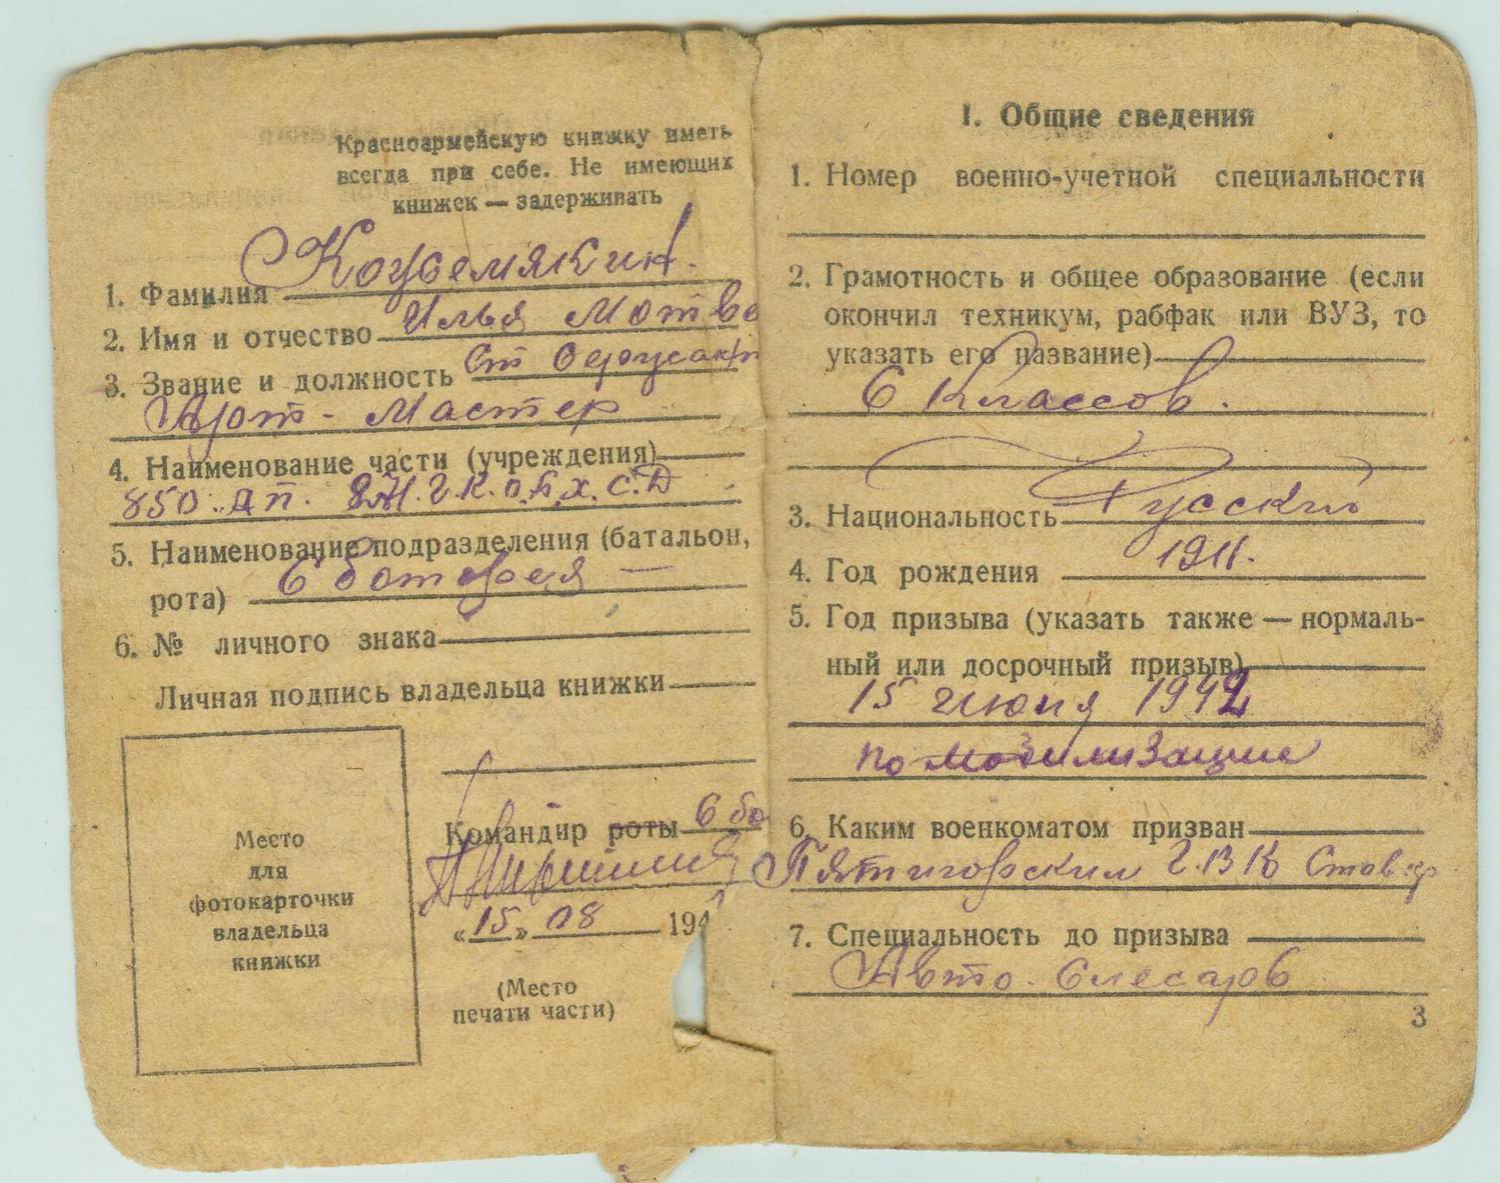 Красноармейскую книжку иметь
всегда при себе. Не имеющих
книжек — задерживать
1. Фамилия Кожемякин.
2. Имя и отчество Илья Мотве
3. Звание и должность Ст
Арт-Мастер
4. Наименование части (учреждения)
850 ап.
5. Наименование подразделения (батальон,
рота) 6 ботарея —
6. № личного знака
Личная подпись владельца книжки
Место
для
фотокарточки
владельца
книжки
Командир роты 6 ба
«15» 08 194
(Место
печати части)
I. Общие сведения
1. Номер военно-учетной специальности
2. Грамотность и общее образование (если
окончил техникум, рабфак или ВУЗ, то
указать его название)
6 Классов.
3. Национальность Русский
4. Год рождения 1911.
5. Год призыва (указать также — нормаль-
ный или досрочный призыв)
15 июня 1942
по мобилизацие
6. Каким военкоматом призван
Пятигорским Г.В К Ставр
7. Специальность до призыва
Авто. Слесарь
3